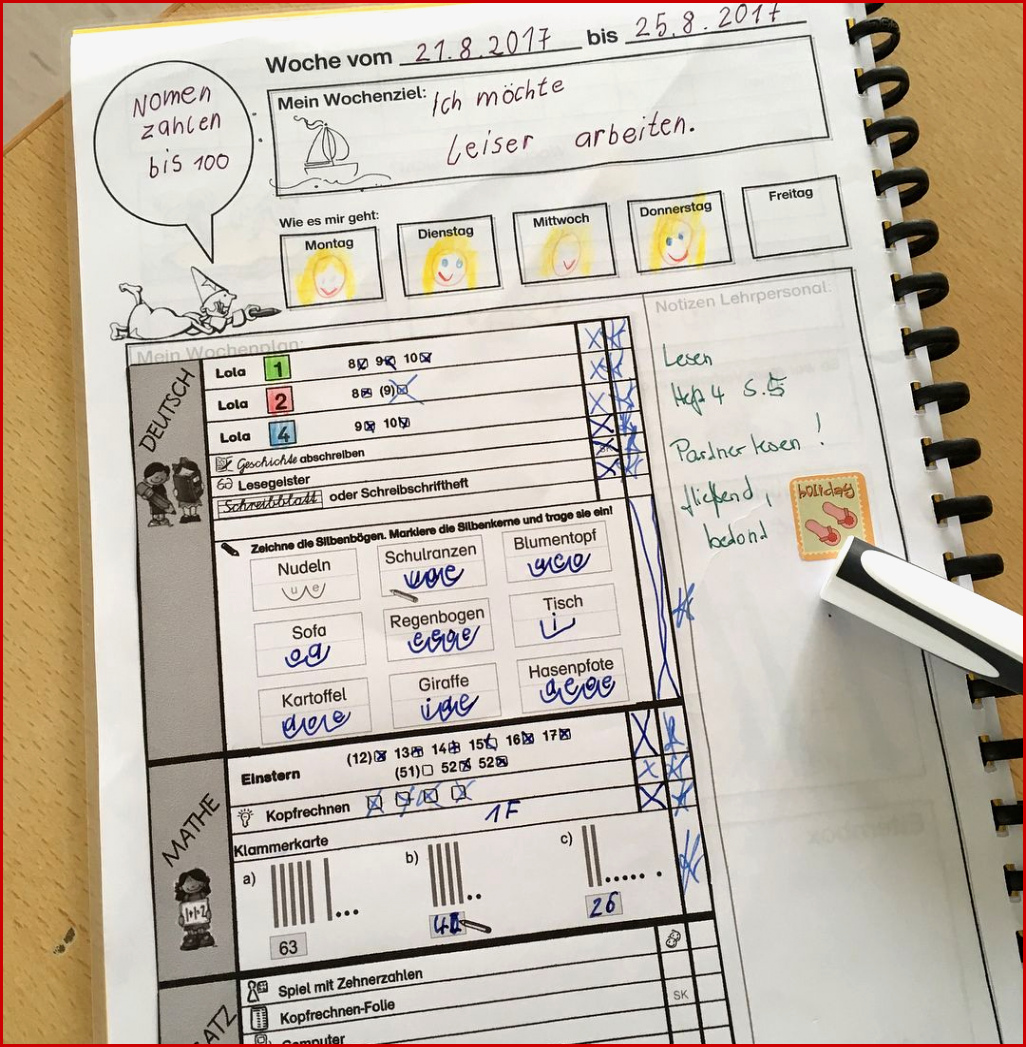 Woche vom 21.8.2017 bis 25.8.2017
Nomen
zahlen
bis 100
Mein Wochenziel: Ich möchte
Leiser arbeiten.
Wie es mir geht:
Montag
Dienstag
Mittwoch
Donnerstag
Freitag
Mein Wochenplan:
DEUTSCH
Lola 1 8 9 10
Lola 2 8 (9)
Lola 4 9 10
Geschichte abschreiben
Lesegeister
Schreibblatt oder Schreibschriftheft
Zeichne die Silbenbögen. Markiere die Silbenkerne und trage sie ein!
Nudeln
u e
Schulranzen
u a e
Blumentopf
u e o
Sofa
o a
Regenbogen
e e o e
Tisch
i
Kartoffel
a o e
Giraffe
i a e
Hasenpfote
a e o e
MATHE
Einstern (12) 13 14 15 16 17
(51) 52 52
Kopfrechnen
1F
Klammerkarte
a)
b)
c)
63
26
ATZ
Spiel mit Zehnerzahlen
Kopfrechnen-Folie
SK
Computer
Notizen Lehrpersonal:
Lesen
Heft 4 S.5
Partner lesen!
fließend,
betont
holiday